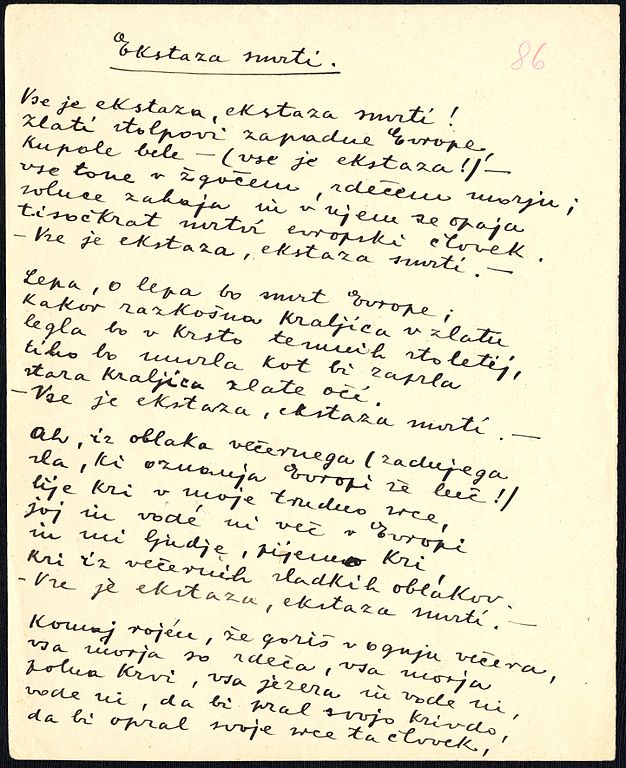 Ekstaza smrti.
86
Vse je ekstaza, ekstaza smrti!
Zlati stolpovi zapadne Evrope,
kupole bele — (vse je ekstaza!) —
vse tone v žgočem, rdečem morju;
solnce zahaja in v njem se opaja
tisočkrat mrtvi evropski človek.
— Vse je ekstaza, ekstaza smrti. —
Lepa, o lepa bo smrt Evrope;
kakor razkošna kraljica v zlatu
legla bo v krsto temnih stoletij,
tiho bo umrla kot bi zaprla
stara kraljica zlate oči.
— Vse je ekstaza, ekstaza smrti. —
Ah, iz oblaka večernega (zadnjega
sla, ki oznanja Evropi še luč!)
lije kri v moje trudno srce,
joj in vodé ni več v Evropi
in mi ljudje, pijemo kri
kri iz večernih sladkih oblakov.
— Vse je ekstaza, ekstaza smrti. —
Komaj rojén, že goriš v ognju večera,
vsa morja so rdeča, vsa morja
polna krvi, vsa jezera in vode ni,
vode ni, da bi pral svojo krivdo,
da bi opral svoje srce ta človek,